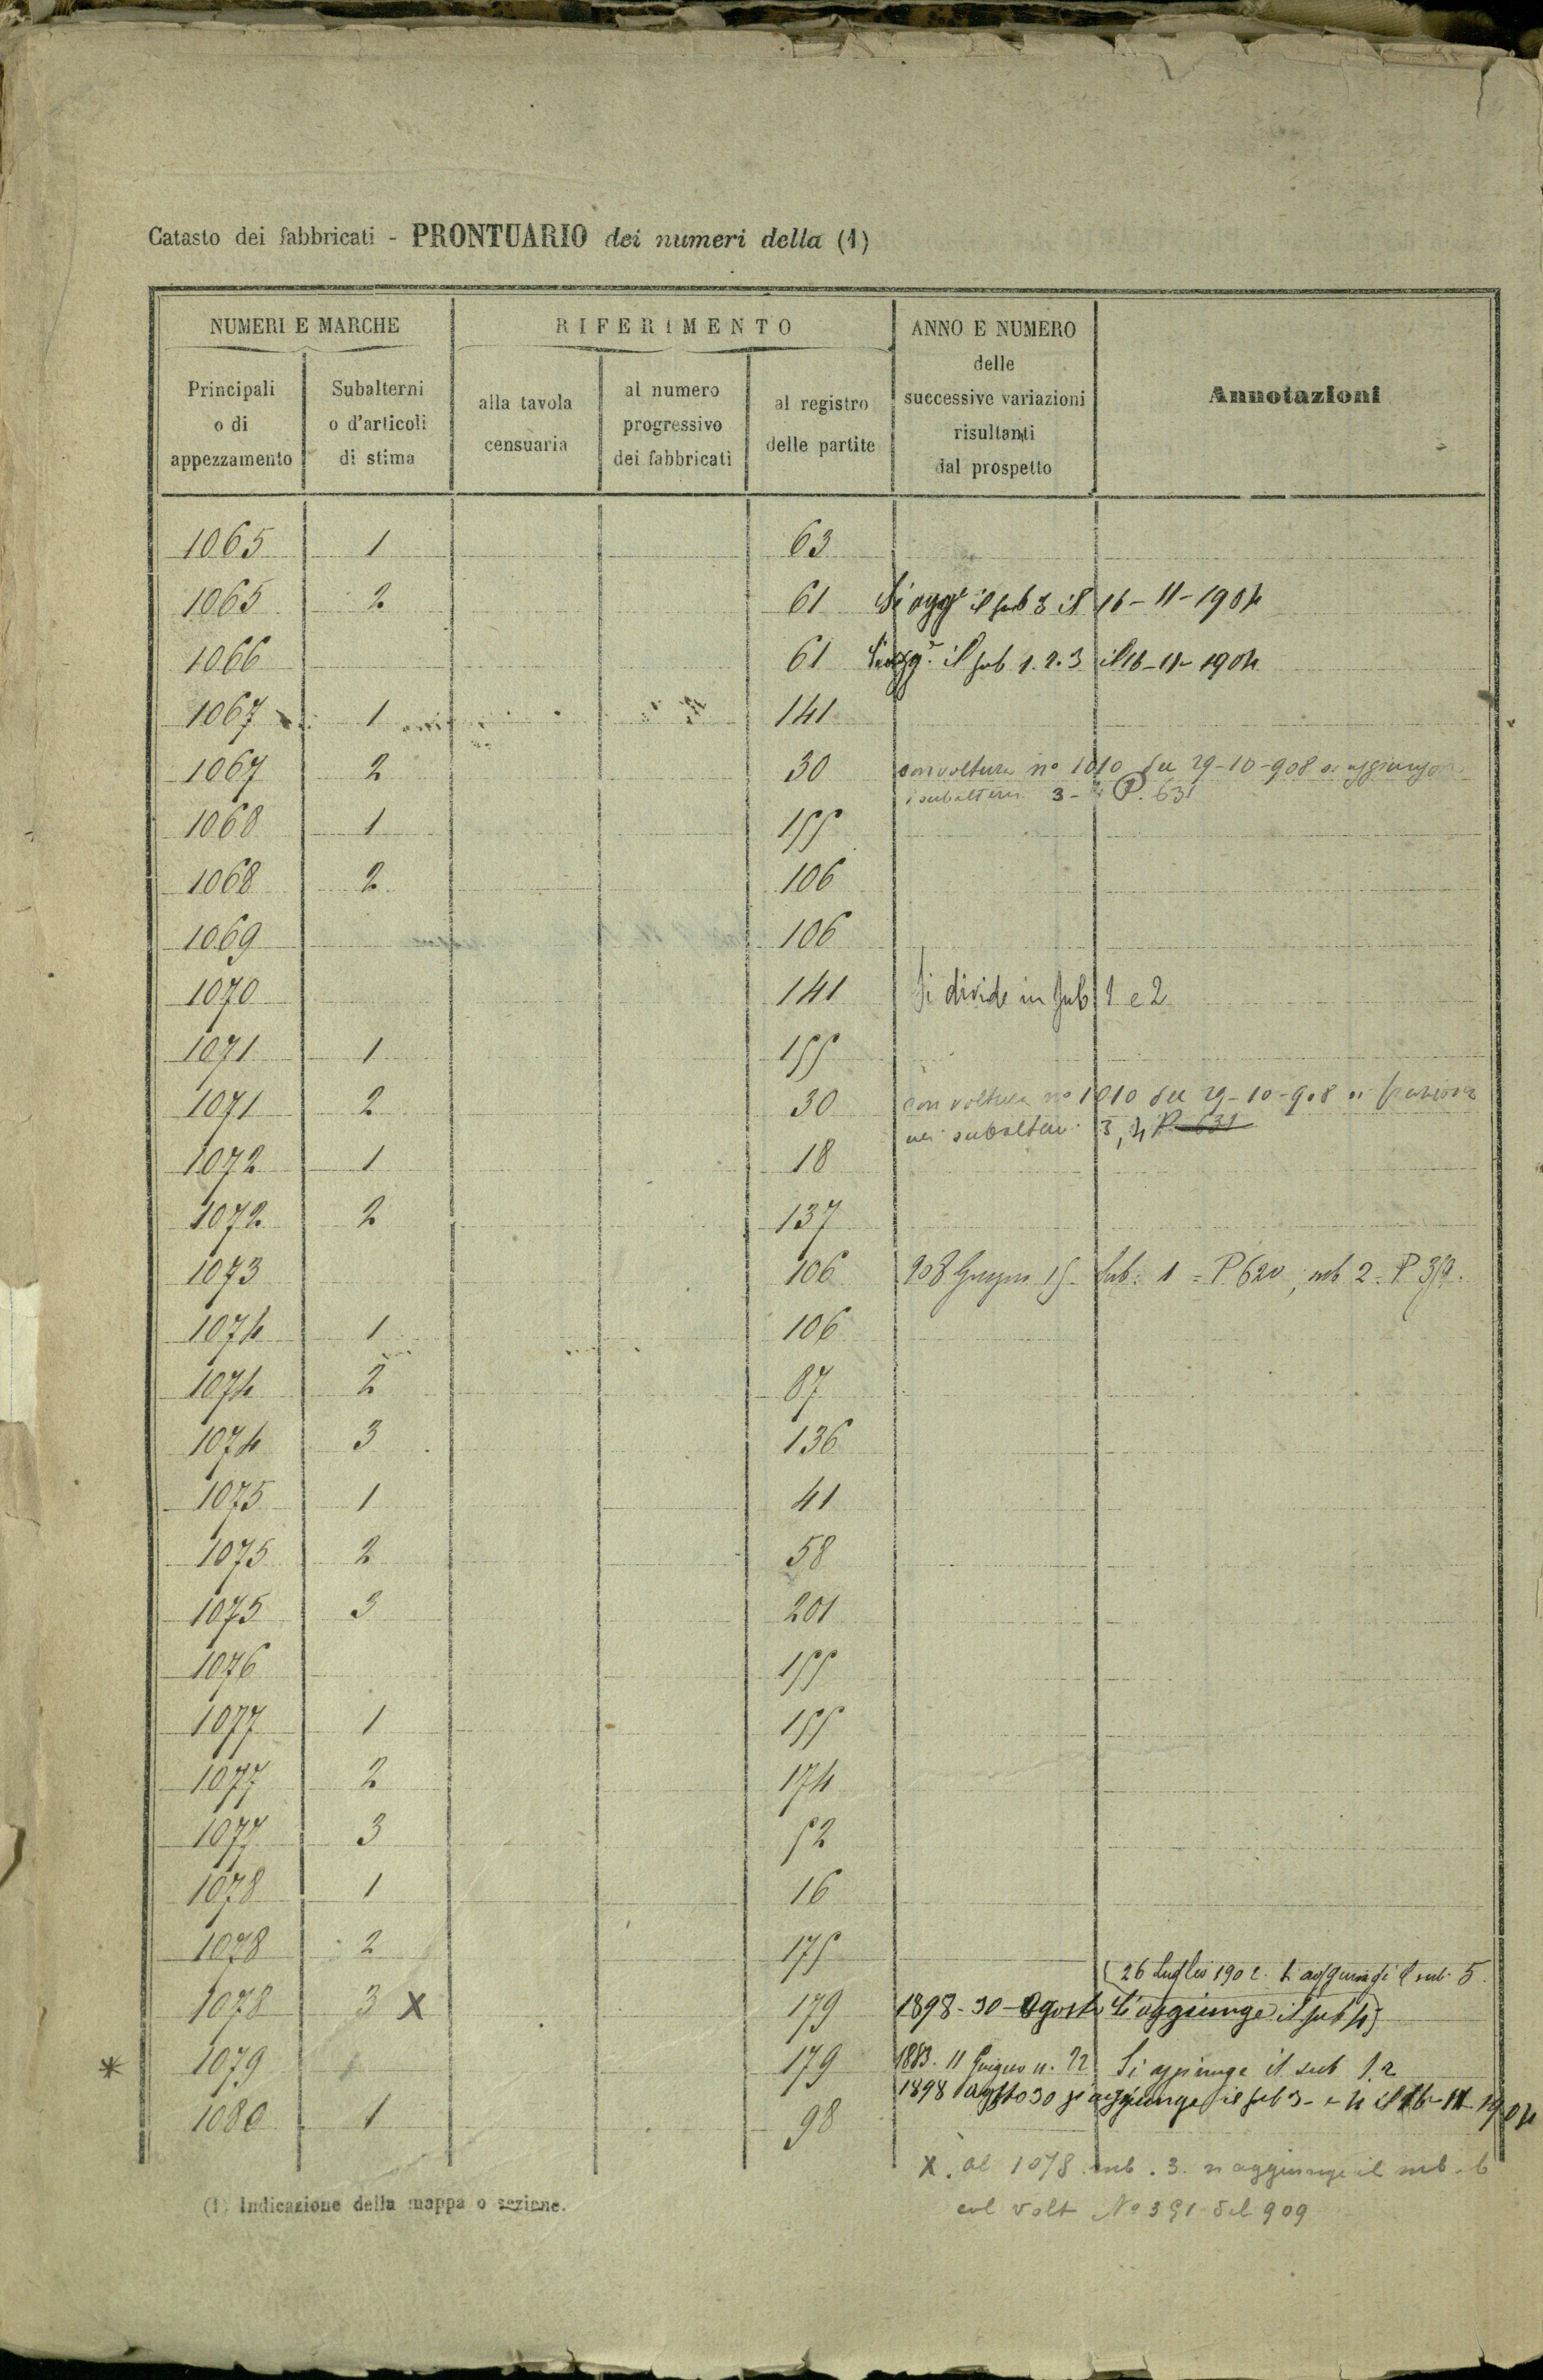 Catasto dei fabbricati - PRONTUARIO dei numeri della (1)
NUMERI E MARCHE RIFERIMENTO ANNO E NUMERO delle successive variazioni risultanti dal prospetto Annotazioni
Principali o di appezzamento Subalterni d'articoli di stima alla tavola censuaria al numero progressivo dei fabbricati al registro delle partite
1065 1 63
1065 2 61 Si agg.e il sub 3 il 16-11-1904
1066 61 Si agg.e il sub 1.2.3 il 16-11-1904
1067 1 141
1067 2 30 con voltura nº 1010 del 29-10-908 si aggiungono
i subalterni 3- P. 631
1068 1 155
1068 2 106
1069 106
1070 141 Si divide in sub 1 e 2
1071 1 155
1071 2 30 con voltura nº 1010 del 29-10-908 si
nei subalterni 3, 4 P. 631
1072 1 18
1072 2 137
1073 106 908 Giugno 15. Sub. 1 = P. 620, sub 2 = P.
1074 1 106
1074 2 87
1074 3 136
1075 1 41
1075 2 58
1075 3 201
1076 155
1077 1 155
1077 2 174
1077 3 52
1078 1 16
1078 2 175
26 Luglio 1902 si aggiunge il sub. 5.
1078 3 X 179 1898-30-Agosto Si aggiunge il sub 4
* 1079 179 1883. 11 Giugno n. 22 Si aggiunge il sub 1.2
1898 Agosto 30 si aggiunge il sub 3- e 4 il 16-11-1904
1080 1 98
X. al 1078 sub. 3. si aggiunge il sub. 6
col volt Nº 391 del 909
(1) Indicazione della mappa o sezione.